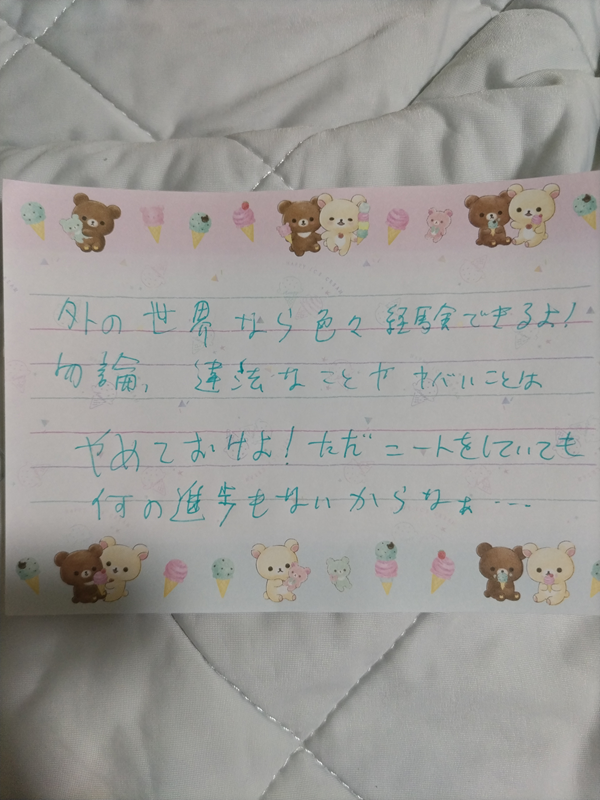 外の世界なら色々経験できるよ!
勿論、違法なことやヤバいことは
やめておけよ!ただニートをしていても
何の進歩もないからなぁ…